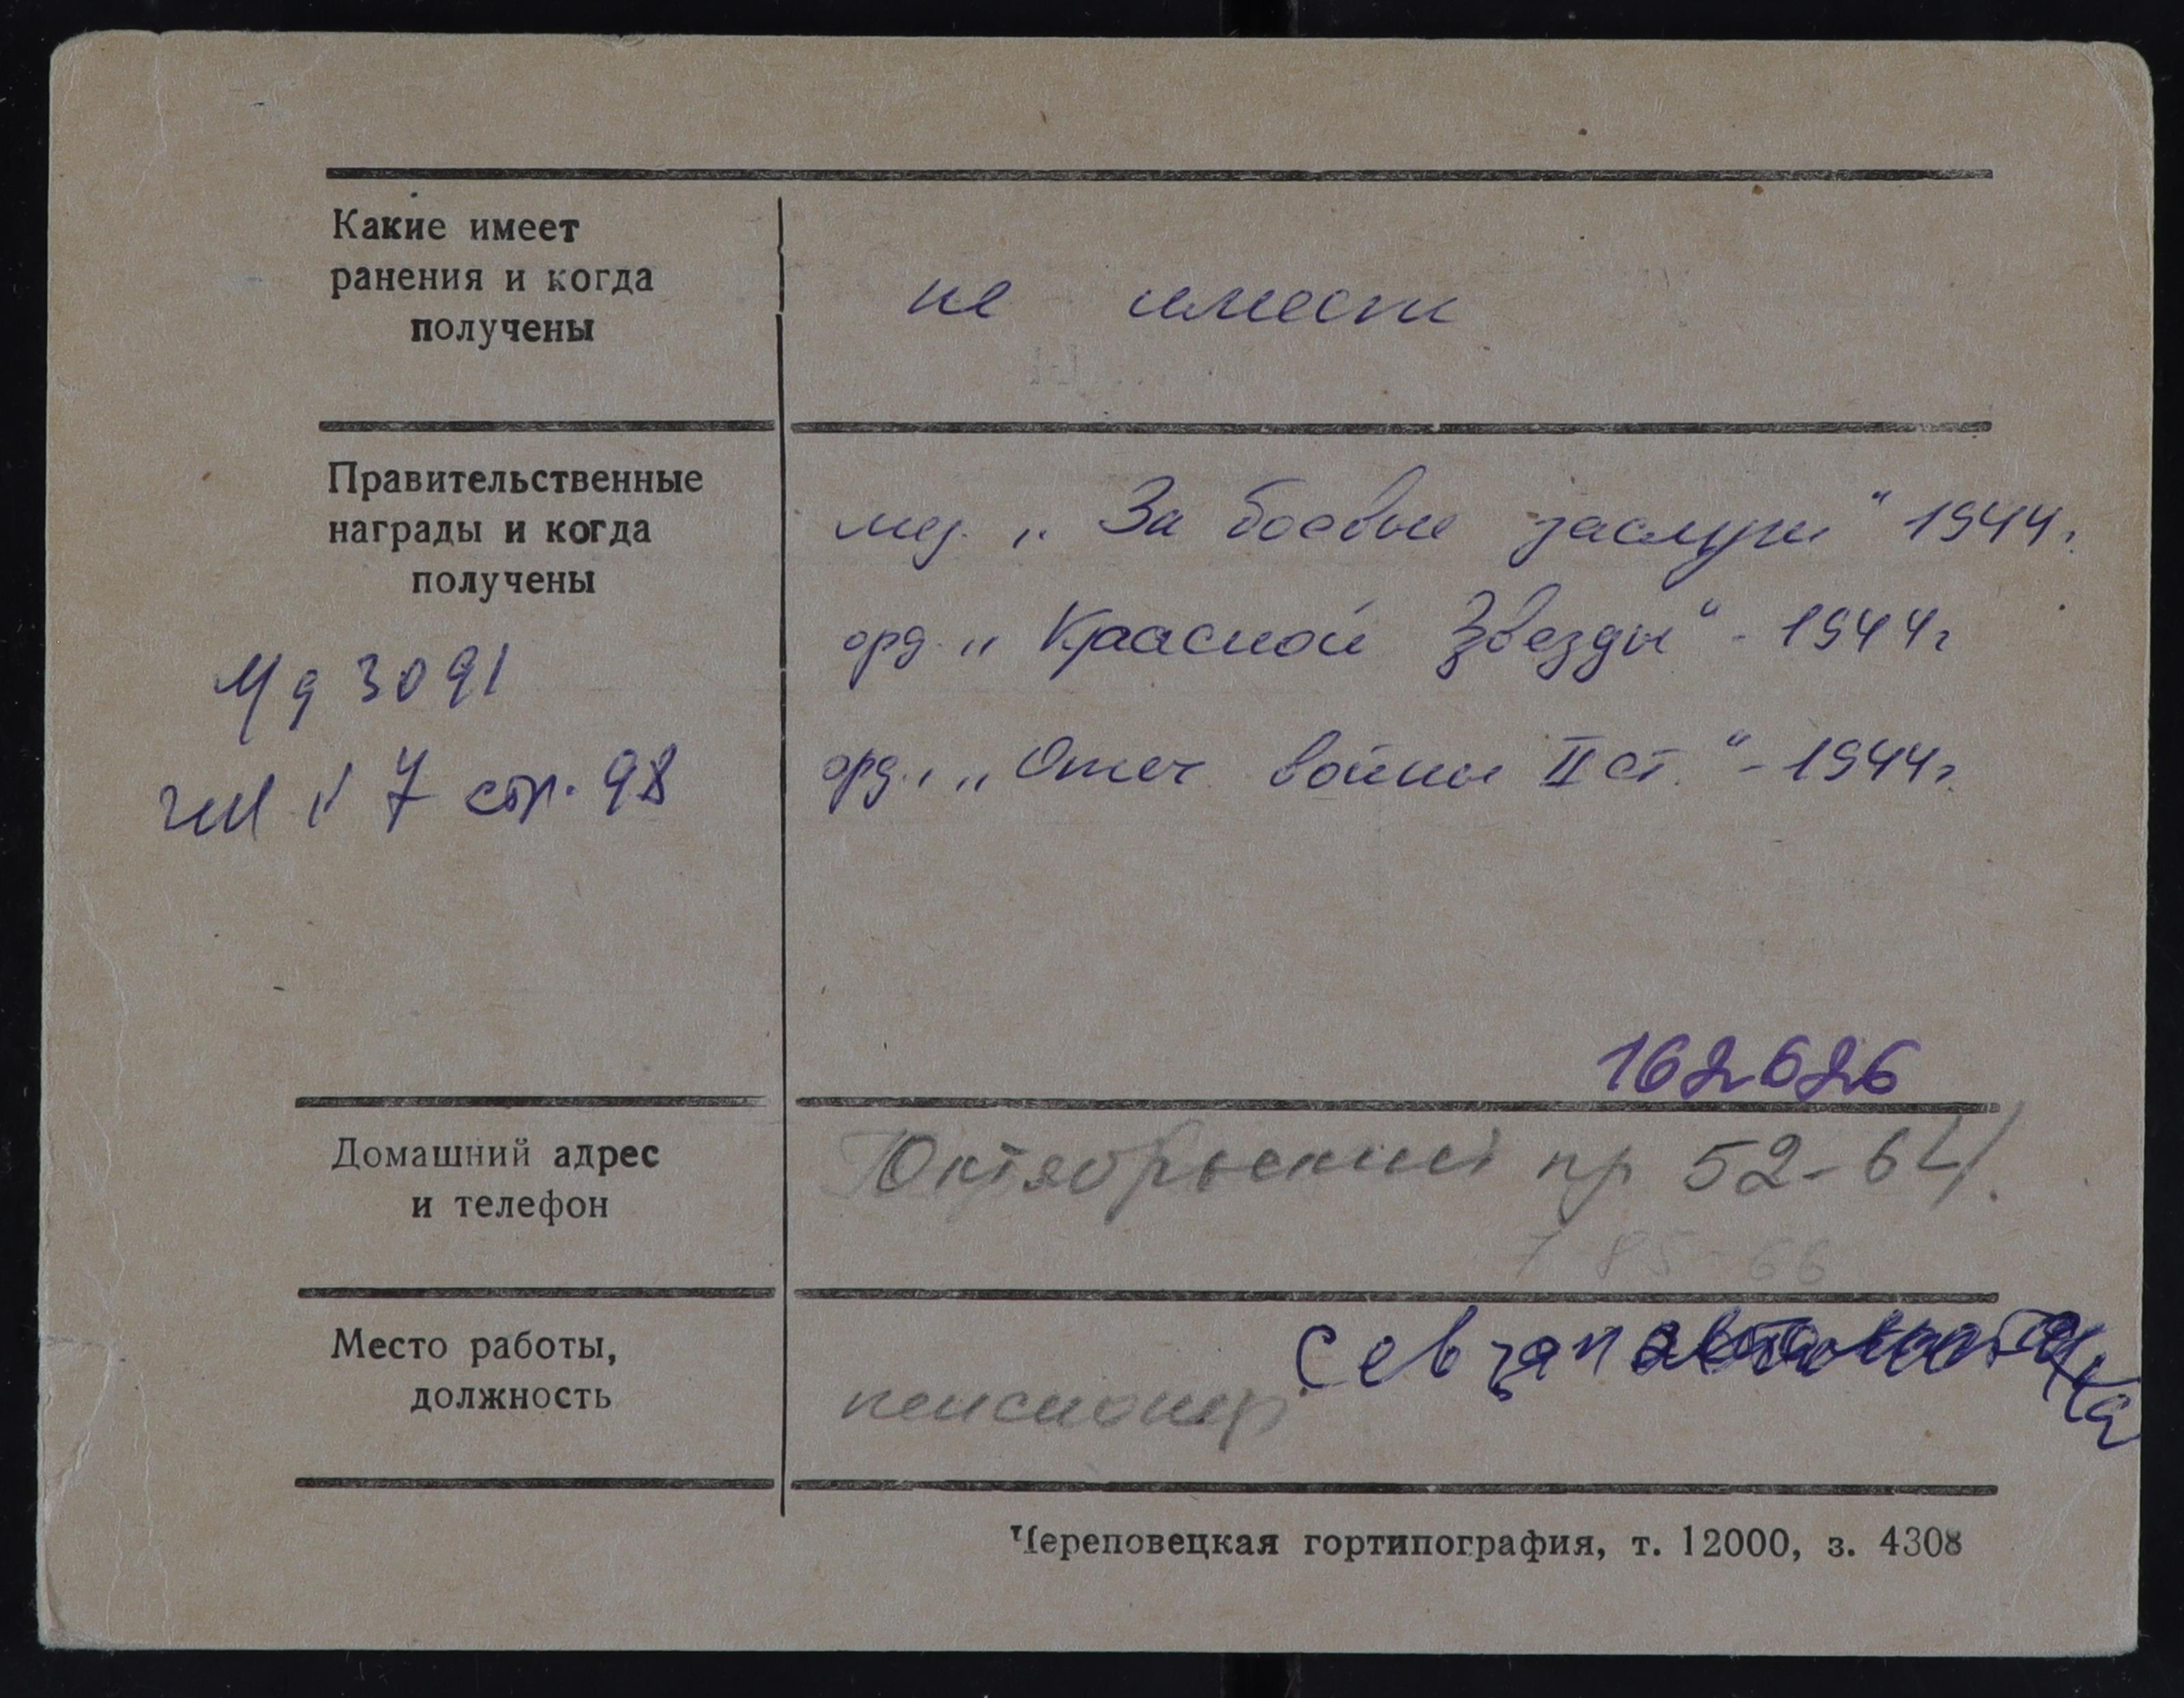 Какие имеет
ранения и когда
получены
не имеет
Правительственные
награды и когда
получены
мед. „За боевые заслуги" 1944г.
орд. „Красной Звезды" - 1944г
орд. „Отеч войны II ст." - 1944г.
3091
7 стр. 98
162626
Домашний адрес
и телефон
Октябрьский пр 52-64.
7 85-66
Место работы,
должность
Севзапавтоматика
пенсионер
Череповецкая гортипография, т. 12000, з. 4308